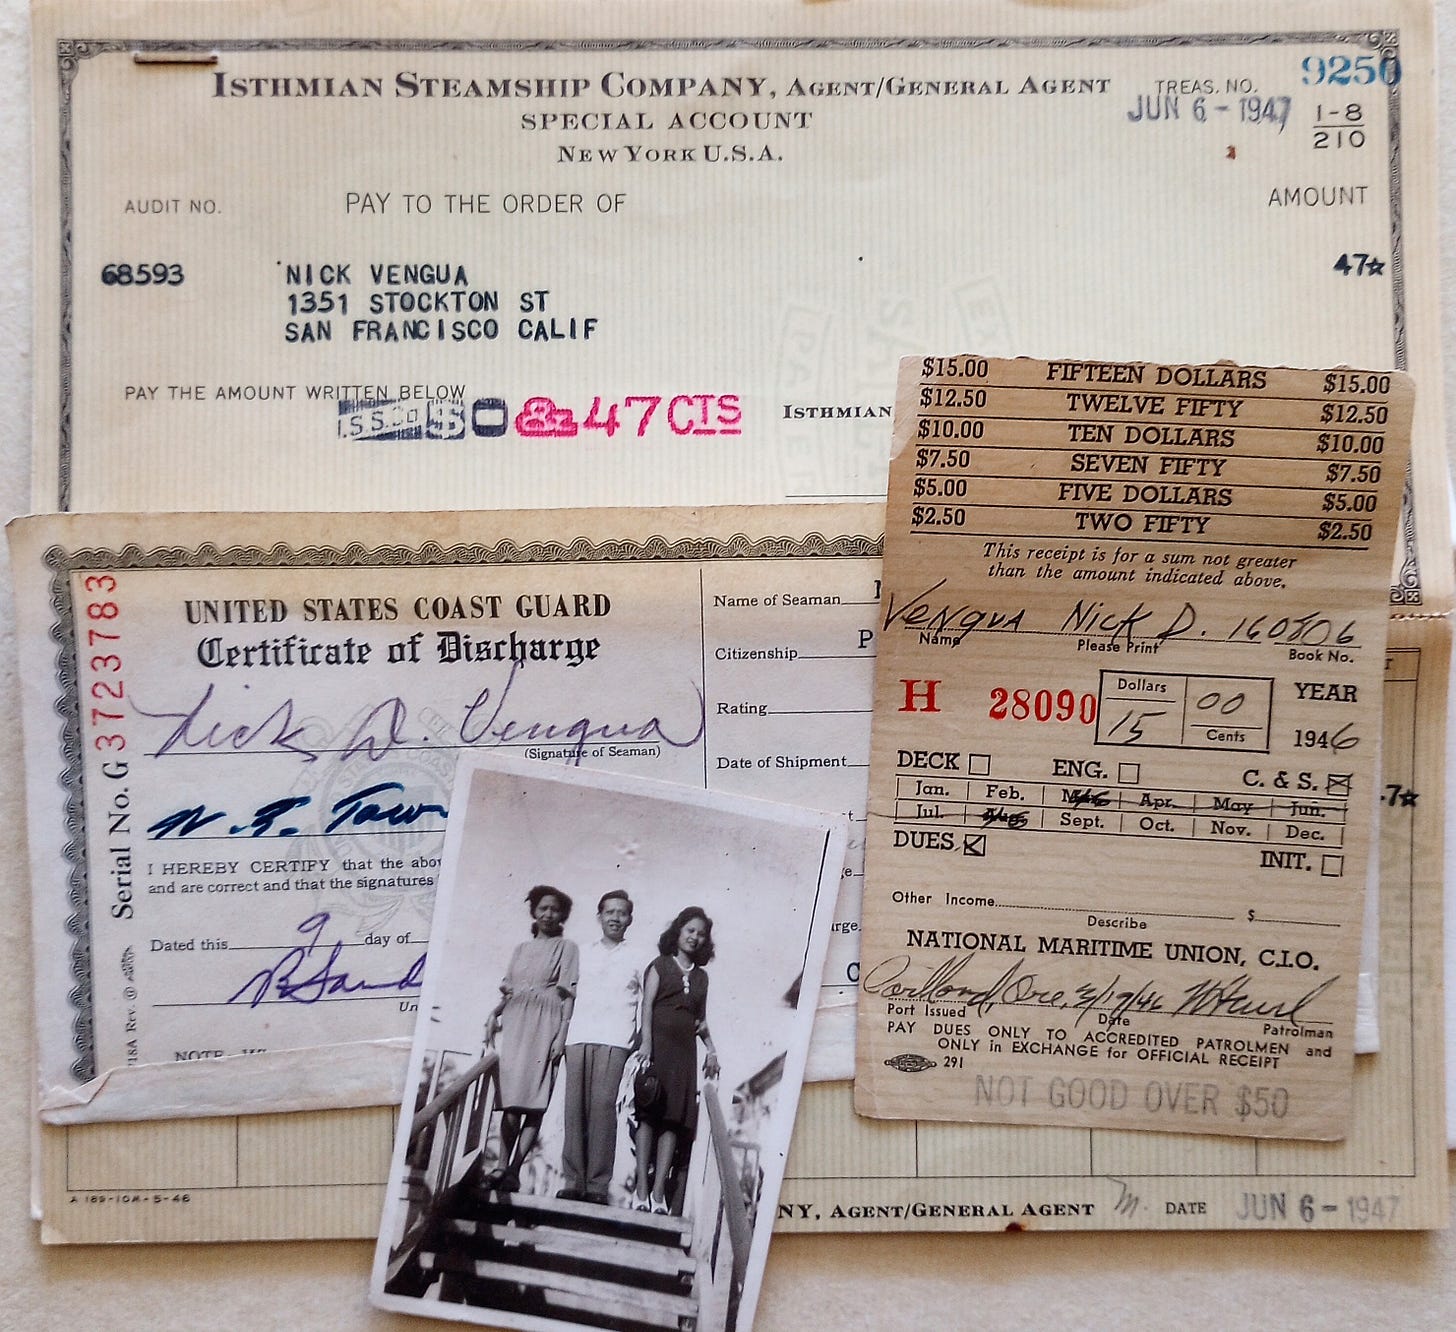 ISTHMIAN STEAMSHIP COMPANY, AGENT/GENERAL AGENT
SPECIAL ACCOUNT
NEW YORK U.S.A.
TREAS. NO. 9250
JUN 6 - 1947
1-8
210
AUDIT NO. PAY TO THE ORDER OF AMOUNT
68593 NICK VENGUA 47☆
1351 STOCKTON ST
SAN FRANCISCO CALIF
PAY THE AMOUNT WRITTEN BELOW
I.S.S.Co $ 0 & 47 CTS
ISTHMIAN
UNITED STATES COAST GUARD
Certificate of Discharge
Nick D. Vengua
(Signature of Seaman)
I HEREBY CERTIFY that the abo
and are correct and that the signatures
Dated this 9 day of
Serial No. G 3723783
18A Rev.
NOTE
Name of Seaman
Citizenship P
Rating
Date of Shipment
$15.00 FIFTEEN DOLLARS $15.00
$12.50 TWELVE FIFTY $12.50
$10.00 TEN DOLLARS $10.00
$7.50 SEVEN FIFTY $7.50
$5.00 FIVE DOLLARS $5.00
$2.50 TWO FIFTY $2.50
This receipt is for a sum not greater
than the amount indicated above.
VENGUA NICK D. 160806
Name Please Print Book No.
H 28090 Dollars 15 00 Cents YEAR
1946
DECK ENG. C. & S.
Jan. Feb. Mar. Apr. May Jun.
Jul. Aug. Sept. Oct. Nov. Dec.
DUES INIT.
Other Income $
Describe
NATIONAL MARITIME UNION, C.I.O.
Portland, Ore,
Port Issued Date Patrolman
PAY DUES ONLY TO ACCREDITED PATROLMEN and
ONLY in EXCHANGE for OFFICIAL RECEIPT
291
NOT GOOD OVER $50
7☆
A 189-10M-5-46
NY, AGENT/GENERAL AGENT DATE JUN 6 - 1947